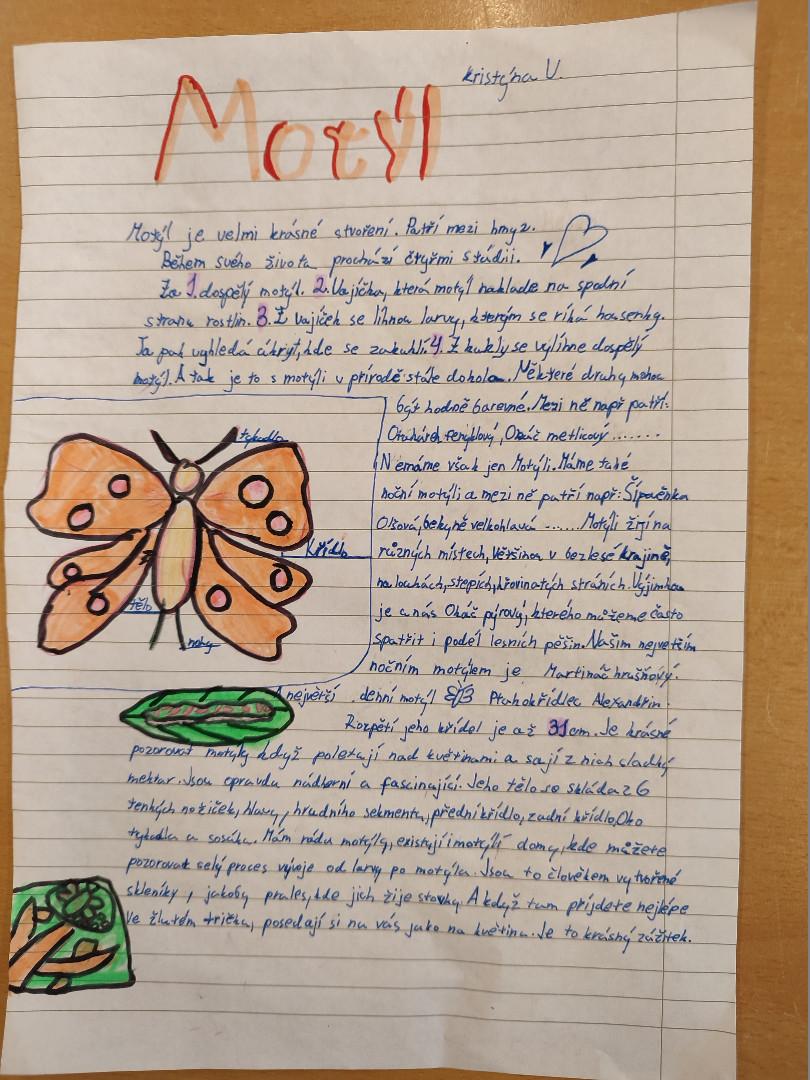 Kristýna V.
Motýl
Motýl je velmi krásné stvoření. Patří mezi hmyz.
Během svého života prochází čtyřmi stádii.
Za 1. dospělý motýl. 2. Vajíčka, která motýl naklade na spodní
stranu rostlin. 3. Z vajíček se líhnou larvy, kterým se říká housenky.
Ta pak vyhledá úkryt, kde se zakuklí. 4. Z kukly se vylíhne dospělý
motýl. A tak je to s motýli v přírodě stále dokola. Některé druhy mohou
být hodně barevné. Mezi ně např patří:
Otakárek fenyklový, Okáč metlicový .......
Nemáme však jen Motýli. Máme také
noční motýli a mezi ně patří např: Šípověnka
Olšová, bekyně velkohlavá ...... Motýli žijí na
různých místech, většinou v bezlesé krajině,
na loukách, stepích, křovinatých stráních. Vyjímkou
je u nás Okáč pýrový, kterého můžeme často
spatřit i podél lesních pěšin. Našim největším
nočním motýlem je Martináč hrušňový.
A největší denní motýl Ptakokřídlec Alexandřin.
Rozpětí jeho křídel je až 31cm. Je krásné
pozorovat motýly když poletují nad květinami a sají z nich sladký
nektar. Jsou opravdu nádherní a fascinující. Jeho tělo se skládá z 6
tenkých nožiček, hlavy, hrudního sekmentu, přední křídlo, zadní křídlo, Oko
tykadla a sosáku. Mám ráda motýly, existují i motýlí domy, kde můžete
pozorovat celý proces vývoje od larvy po motýla. Jsou to člověkem vytvořené
skleníky, jakoby prales, kde jich žije stovky. A když tam přijdete nejlépe
ve žlutém tričku, posedají si na vás jako na květinu. Je to krásný zážitek.
tykadlo
Křídlo
tělo
nohy